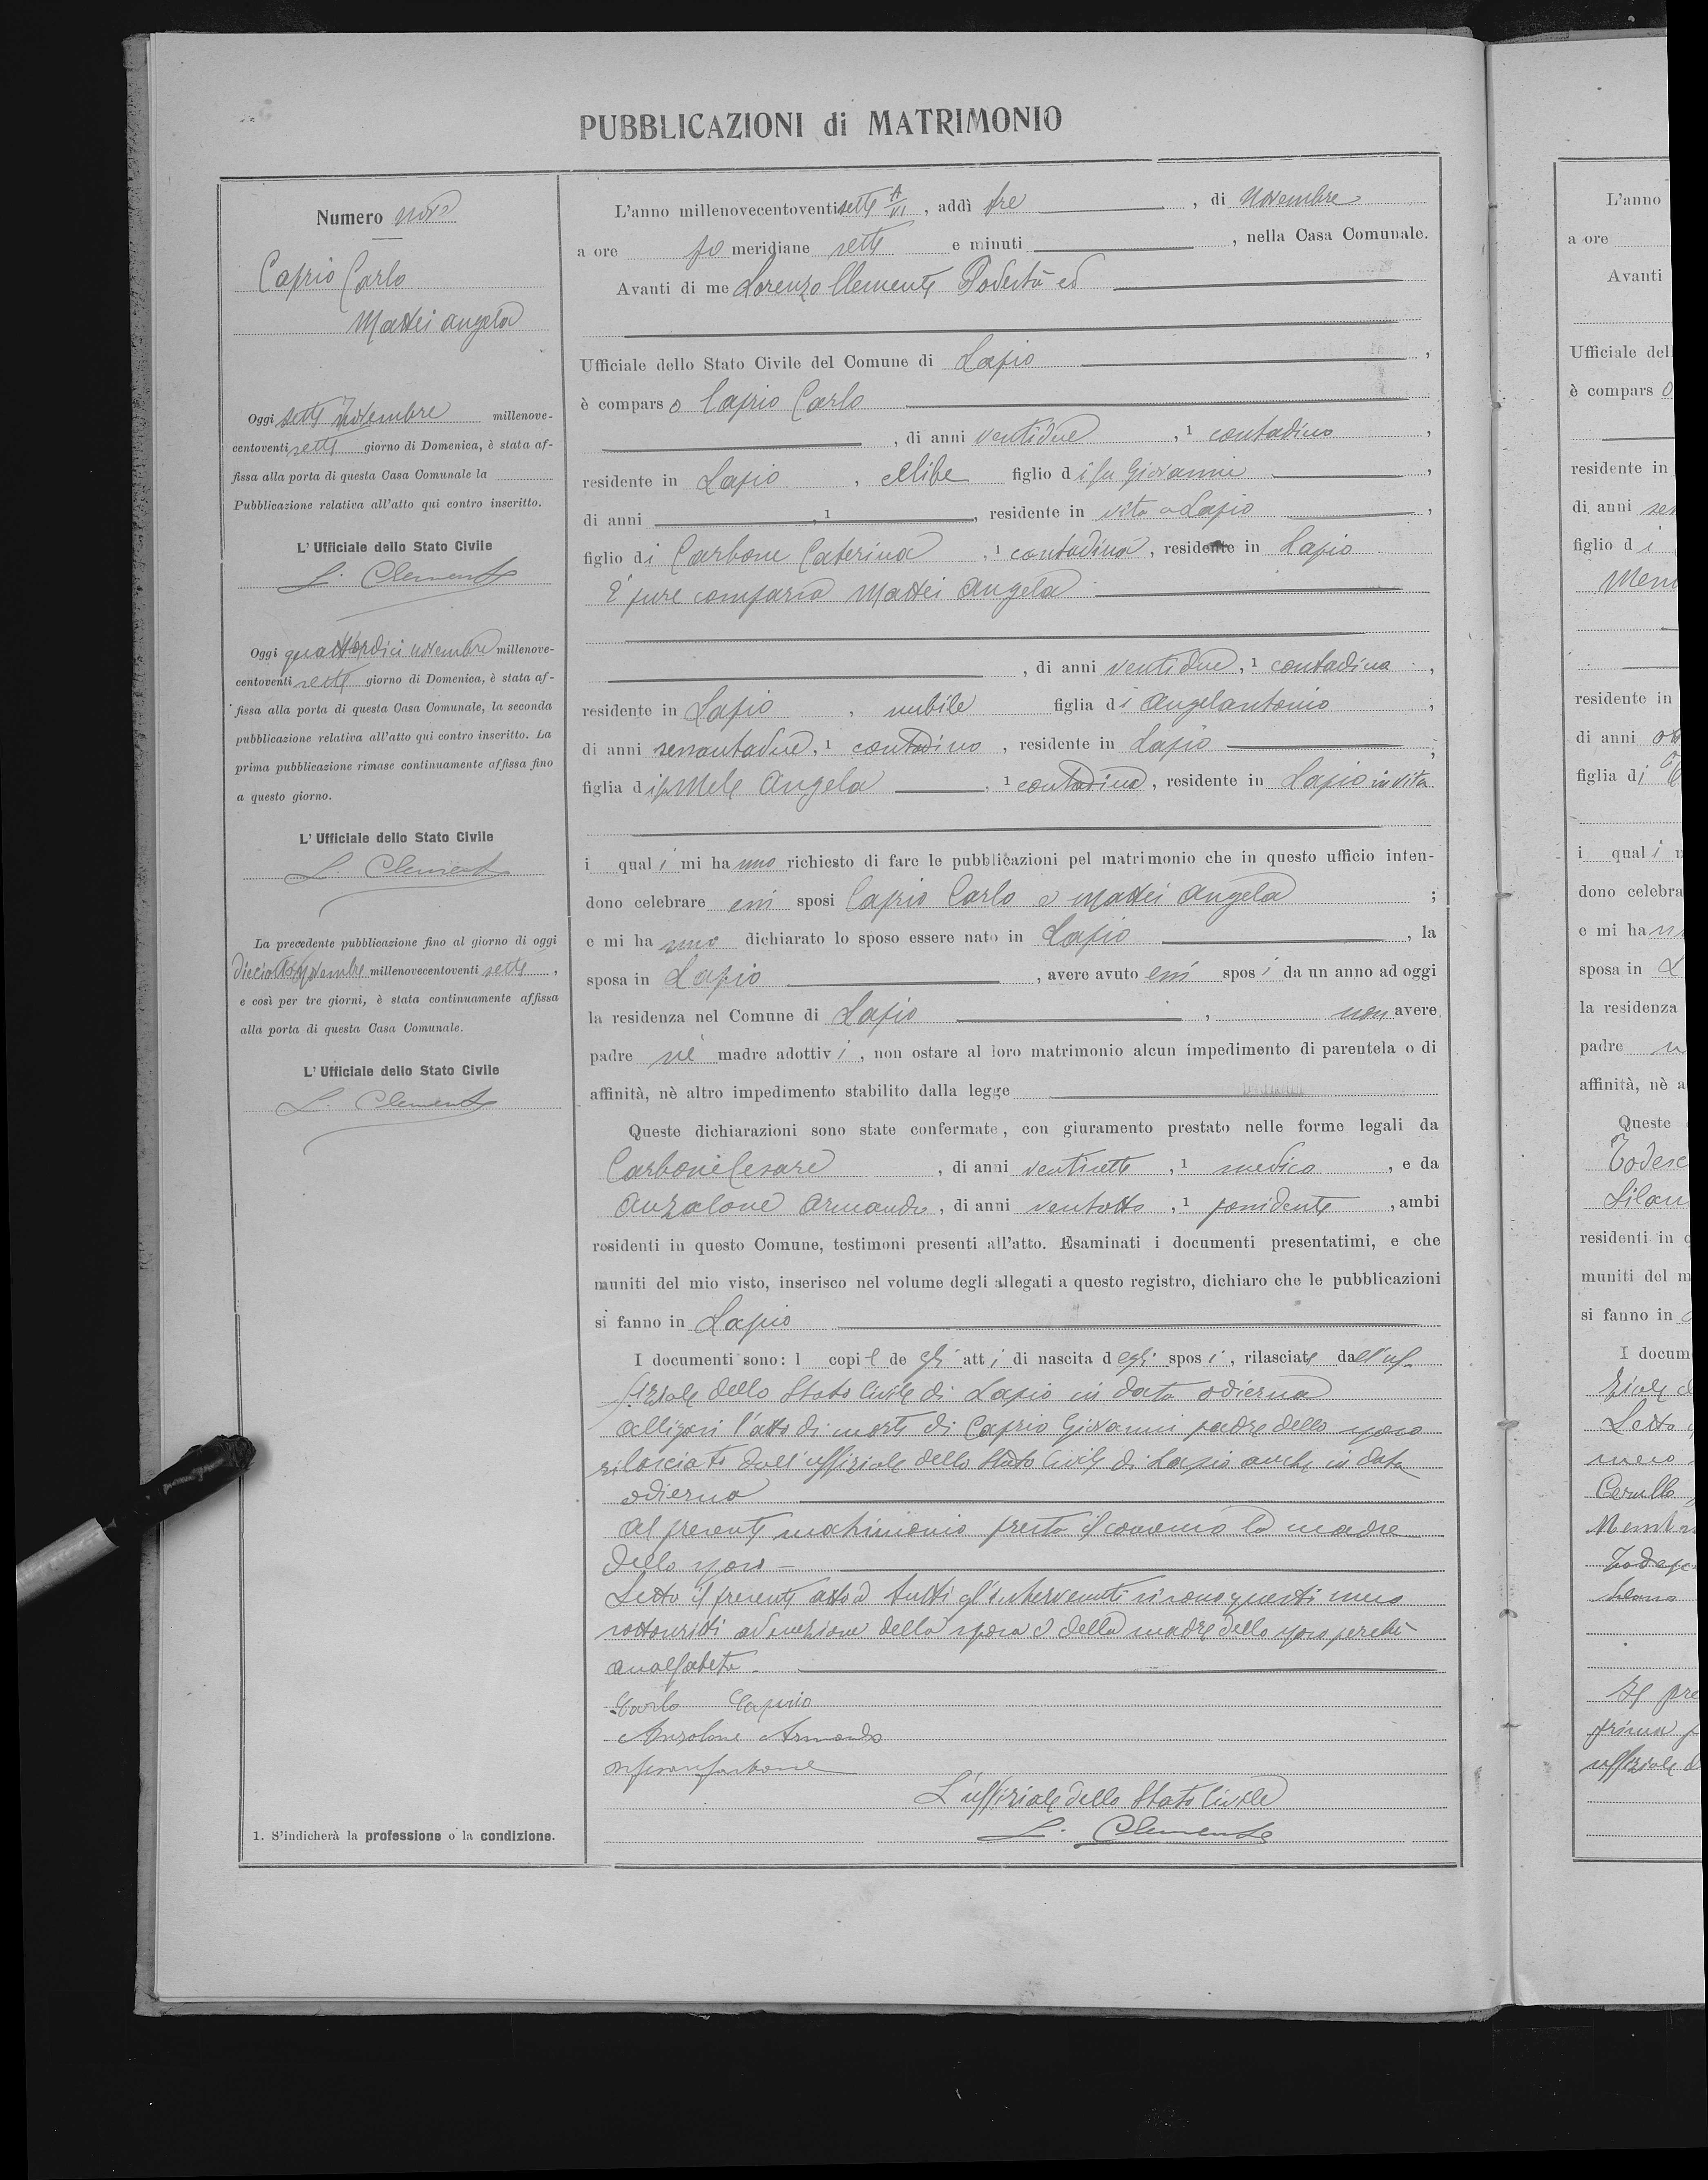 PUBBLICAZIONI di MATRIMONIO
Numero nove
Caprio Carlo
Mattei Angela
Oggi sette Novembre millenove-
centoventisette giorno di Domenica, è stata af-
fissa alla porta di questa Casa Comunale la
Pubblicazione relativa all'atto qui contro inscritto.
L'Ufficiale dello Stato Civile
L. Clemente
Oggi quattordici novembre millenove-
centoventisette giorno di Domenica, è stata af-
fissa alla porta di questa Casa Comunale, la seconda
pubblicazione relativa all'atto qui contro inscritto. La
prima pubblicazione rimase continuamente affissa fino
a questo giorno.
L'Ufficiale dello Stato Civile
L. Clemente
La precedente pubblicazione fino al giorno di oggi
diciotto novembre millenovecentoventisette,
e così per tre giorni, è stata continuamente affissa
alla porta di questa Casa Comunale.
L'Ufficiale dello Stato Civile
L. Clemente
1. S'indicherà la professione o la condizione.
L'anno millenovecentoventisette A/VI, addì tre, di Novembre
a ore po meridiane sette e minuti, nella Casa Comunale.
Avanti di me Lorenzo Clemente Podestà ed
Ufficiale dello Stato Civile del Comune di Lapio,
è comparso Caprio Carlo
, di anni ventidue, 1 contadino,
residente in Lapio, celibe figlio di fu Giovanni,
di anni, 1, residente in vita a Lapio,
figlio di Carbone Caterina, 1 contadina, residente in Lapio
È pure comparsa Mattei Angela
, di anni ventidue, 1 contadina,
residente in Lapio, nubile figlia di Angelantonio;
di anni sessantadue, 1 contadino, residente in Lapio;
figlia di fu Mele Angela, 1 contadina, residente in Lapio in vita
i quali mi hanno richiesto di fare le pubblicazioni pel matrimonio che in questo ufficio inten-
dono celebrare essi sposi Caprio Carlo e Mattei Angela;
e mi hanno dichiarato lo sposo essere nato in Lapio, la
sposa in Lapio, avere avuto essi sposi da un anno ad oggi
la residenza nel Comune di Lapio, non avere
padre nè madre adottivi, non ostare al loro matrimonio alcun impedimento di parentela o di
affinità, nè altro impedimento stabilito dalla legge
Queste dichiarazioni sono state confermate, con giuramento prestato nelle forme legali da
Carbone Cesare, di anni ventisette, 1 medico, e da
Anzalone Armando, di anni ventotto, 1 possidente, ambi
residenti in questo Comune, testimoni presenti all'atto. Esaminati i documenti presentatimi, e che
muniti del mio visto, inserisco nel volume degli allegati a questo registro, dichiaro che le pubblicazioni
si fanno in Lapio
I documenti sono: l copie de gli atti di nascita degli sposi, rilasciate dall'uf-
fiziale dello Stato Civile di Lapio in data odierna
alligasi l'atto di morte di Caprio Giovanni padre dello sposo
rilasciato dall'uffiziale dello Stato Civile di Lapio anche in data
odierna
Al presente matrimonio presta il consenso la madre
dello sposo
Letto il presente atto a tutti gl'intervenuti si sono questi meco
sottoscritti ad eccezione della sposa e della madre dello sposo perchè
analfabete.
Carlo Caprio
Anzalone Armando
L'uffiziale dello Stato Civile
L. Clemente
L'anno
a ore
Avanti
Ufficiale dell
è comparso
residente in
di anni
figlio di
residente in
di anni
figlia di
i quali
dono celebra
e mi ha
sposa in
la residenza
padre
affinità, nè a
Queste
residenti in
muniti del m
si fanno in
I docum